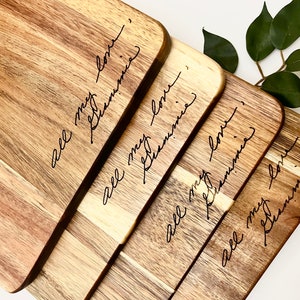 all my love,
Grammie
all my love,
Grammie
all my love,
Grammie
all my love,
Grammie